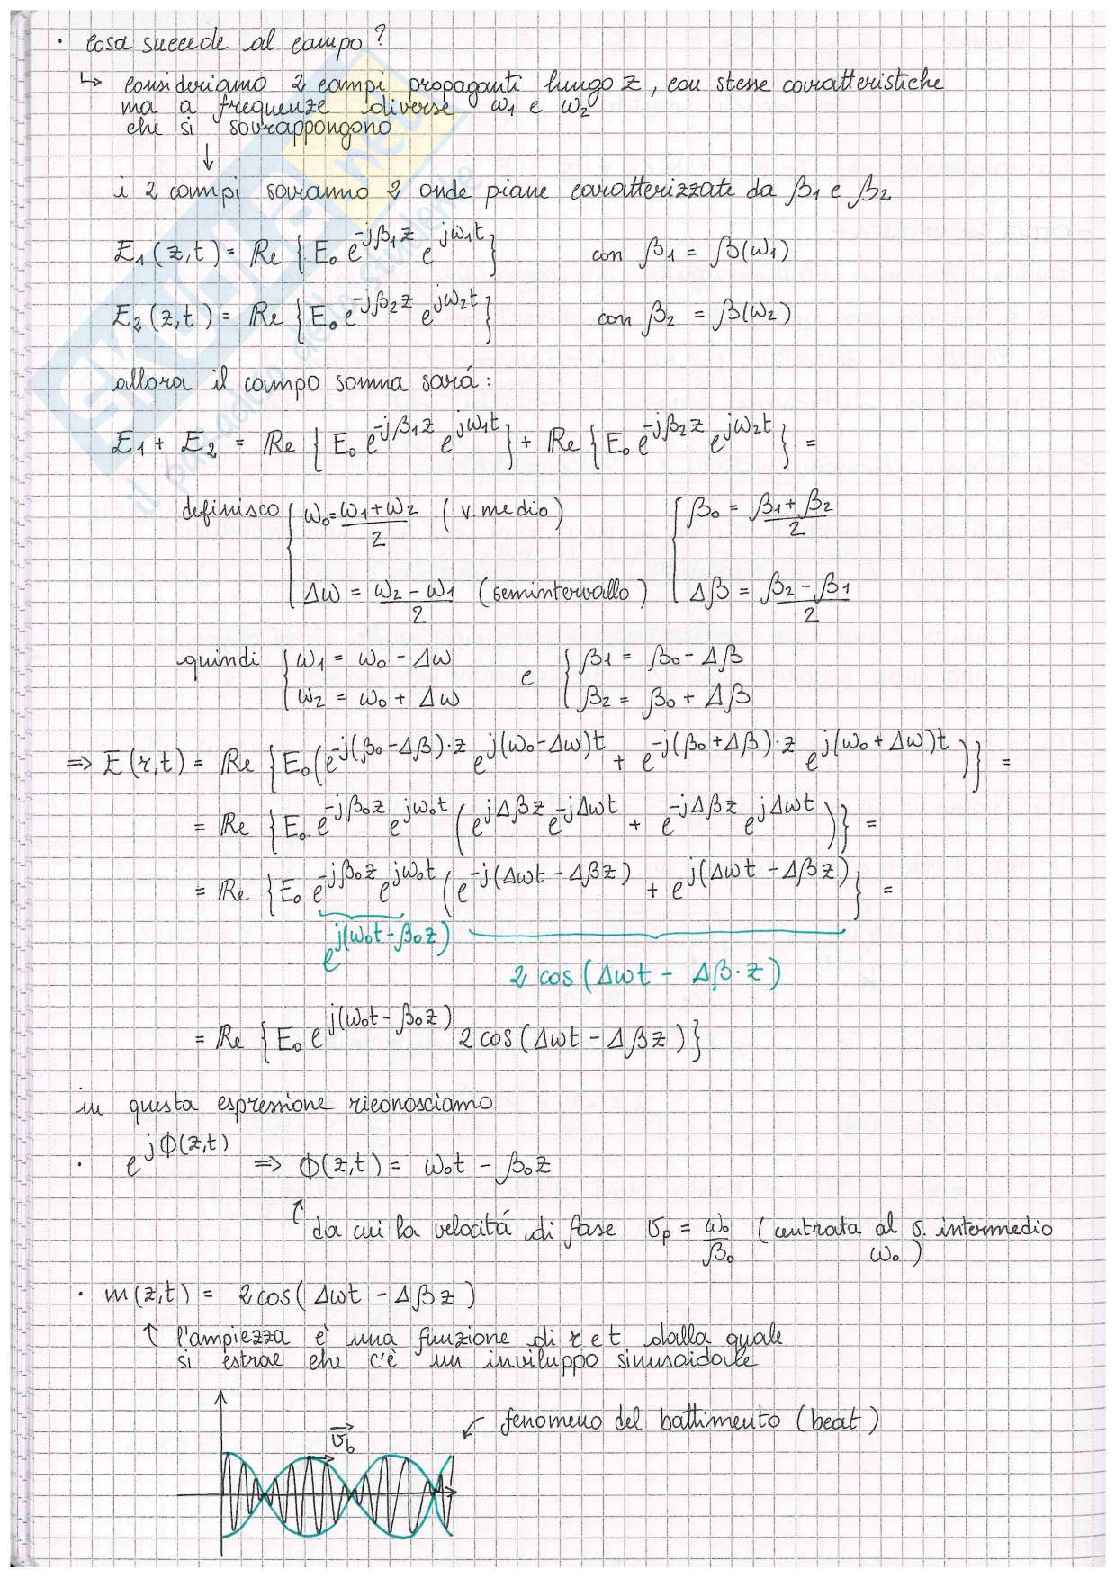 · Cosa succede al campo?
↳ consideriamo 2 campi propaganti lungo z, con stesse caratteristiche
ma a frequenze diverse ω₁ e ω₂
che si sovrappongono
↓
i 2 campi saranno 2 onde piane caratterizzate da β₁ e β₂
E₁(z,t) = Re {E₀ e^{-jβ₁z} e^{jω₁t}} con β₁ = β(ω₁)
E₂(z,t) = Re {E₀ e^{-jβ₂z} e^{jω₂t}} con β₂ = β(ω₂)
allora il campo somma sará:
E₁ + E₂ = Re {E₀ e^{-jβ₁z} e^{jω₁t}} + Re {E₀ e^{-jβ₂z} e^{jω₂t}} =
definisco { ω₀ = (ω₁+ω₂)/2 (v. medio) { β₀ = (β₁+β₂)/2
Δω = (ω₂-ω₁)/2 (semintervallo) Δβ = (β₂-β₁)/2
quindi { ω₁ = ω₀ - Δω e { β₁ = β₀ - Δβ
ω₂ = ω₀ + Δω β₂ = β₀ + Δβ
⇒ E(r,t) = Re {E₀(e^{-j(β₀-Δβ)·z} e^{j(ω₀-Δω)t} + e^{-j(β₀+Δβ)·z} e^{j(ω₀+Δω)t})} =
= Re {E₀ e^{-jβ₀z} e^{jω₀t} (e^{jΔβz} e^{-jΔωt} + e^{-jΔβz} e^{jΔωt})} =
= Re {E₀ e^{-jβ₀z} e^{jω₀t} (e^{-j(Δωt - Δβz)} + e^{j(Δωt - Δβz)}} =
e^{j(ω₀t-β₀z)}
2 cos(Δωt - Δβ·z)
= Re {E₀ e^{j(ω₀t-β₀z)} 2 cos(Δωt - Δβz)}
in questa espressione riconosciamo
· e^{jΦ(z,t)} ⇒ Φ(z,t) = ω₀t - β₀z
↑ da cui la velocitá di fase v_p = ω₀/β₀ (centrata al s. intermedio
ω₀)
· m(z,t) = 2cos(Δωt - Δβz)
↑ l'ampiezza è una funzione di z e t dalla quale
si estrae che c'è un inviluppo sinusoidale
↙ fenomeno del battimento (beat)
v_b